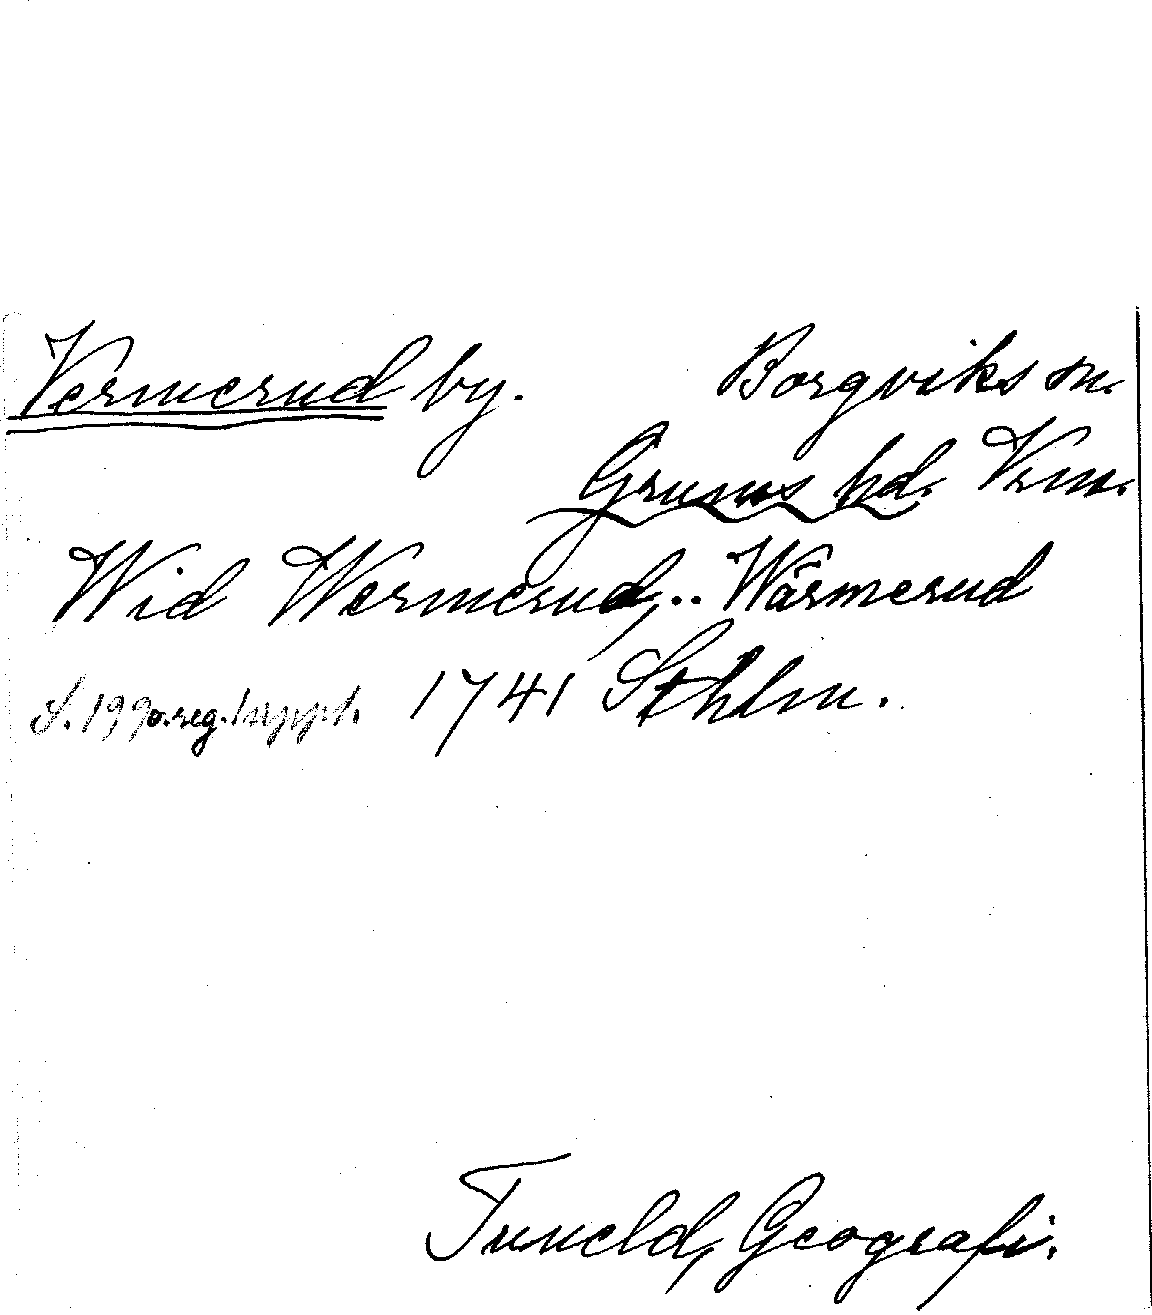 Vermerud by. Borgviks sn.
Grums hd. Vrm.
Wid Wermerud,.. Wärmerud
S. 199 o. reg. 1 uppl. 1741 Sthlm.
Tuneld, Geografi.